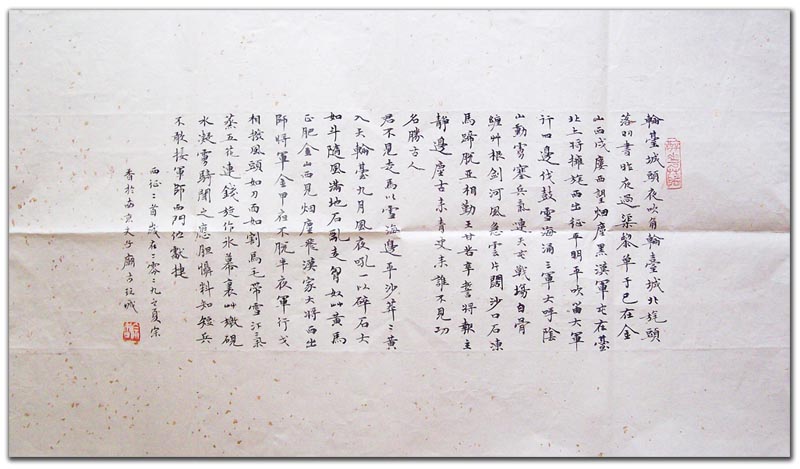 輪臺城頭夜吹角輪臺城北旄頭
落羽書昨夜過渠黎單于已在金
山西戍虜西望烟塵黑漢軍屯在臺
北上將擁旄西出征平明平吹笛大軍
行四邊伐鼓雪海涌三軍大呼陰
山動虜塞兵氣連天雲戰場白骨
纏艸根劍河風急雲片闊沙口石凍
馬蹄脫亞相勤王甘苦辛誓將報主
靜邊塵古來青史來誰不見功
名勝古人
君不見走馬川雪海邊平沙莽〻黃
入天輪臺九月風夜吼一川碎石大
如斗隨風滿地石亂走匈奴艸黃馬
正肥金山西見烟塵飛漢家大將西出
師將軍金甲夜不脫半夜軍行戈
相撥風頭如刀面如割馬毛帶雪汗氣
蒸五花連錢旋作冰幕裏艸檄硯
水凝虜騎聞之應胆懾料知短兵
不敢接軍師西門佇獻捷
西征二首歲在二零零九之夏宗
香於南京夫子廟古玩城